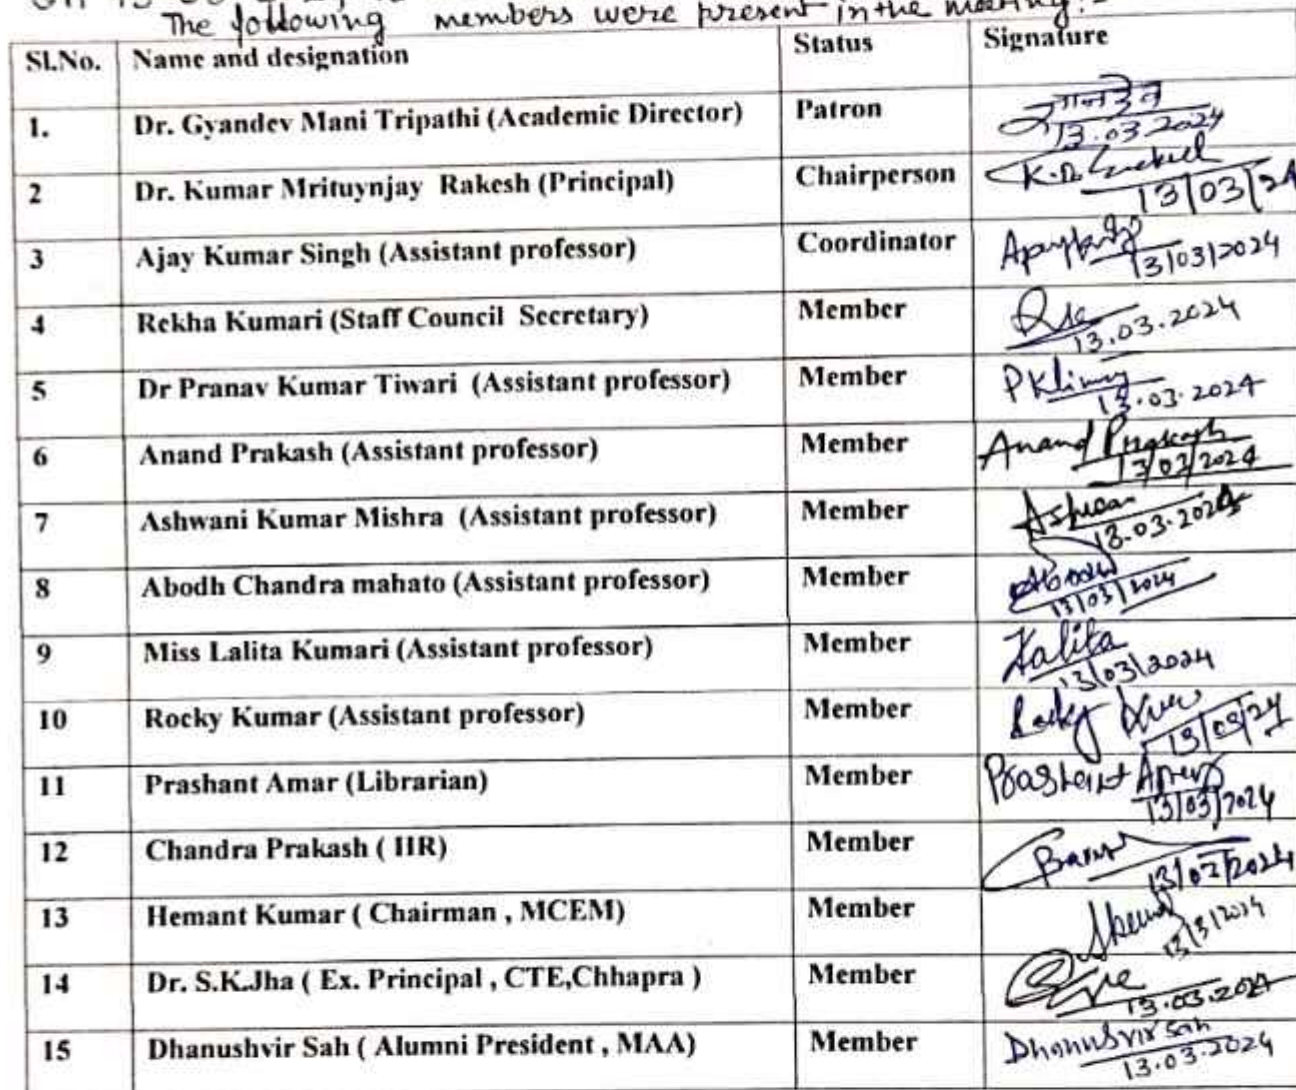 The following members were present in the meeting:-
Sl.No. Name and designation Status Signature
1. Dr. Gyandev Mani Tripathi (Academic Director) Patron ज्ञानदेव
13.03.2024
2 Dr. Kumar Mrituynjay Rakesh (Principal) Chairperson
13/03/24
3 Ajay Kumar Singh (Assistant professor) Coordinator
13/03/2024
4 Rekha Kumari (Staff Council Secretary) Member
13.03.2024
5 Dr Pranav Kumar Tiwari (Assistant professor) Member
13.03.2024
6 Anand Prakash (Assistant professor) Member Anand Prakash
13/03/2024
7 Ashwani Kumar Mishra (Assistant professor) Member
13.03.2024
8 Abodh Chandra mahato (Assistant professor) Member
13/03/2024
9 Miss Lalita Kumari (Assistant professor) Member Lalita
13/03/2024
10 Rocky Kumar (Assistant professor) Member Rocky
13/03/24
11 Prashant Amar (Librarian) Member Prashant
13/03/2024
12 Chandra Prakash ( HR) Member
13/03/2024
13 Hemant Kumar ( Chairman , MCEM) Member
13/3/2024
14 Dr. S.K.Jha ( Ex. Principal , CTE,Chhapra ) Member
13.03.2024
15 Dhanushvir Sah ( Alumni President , MAA) Member Dhanushvir Sah
13.03.2024